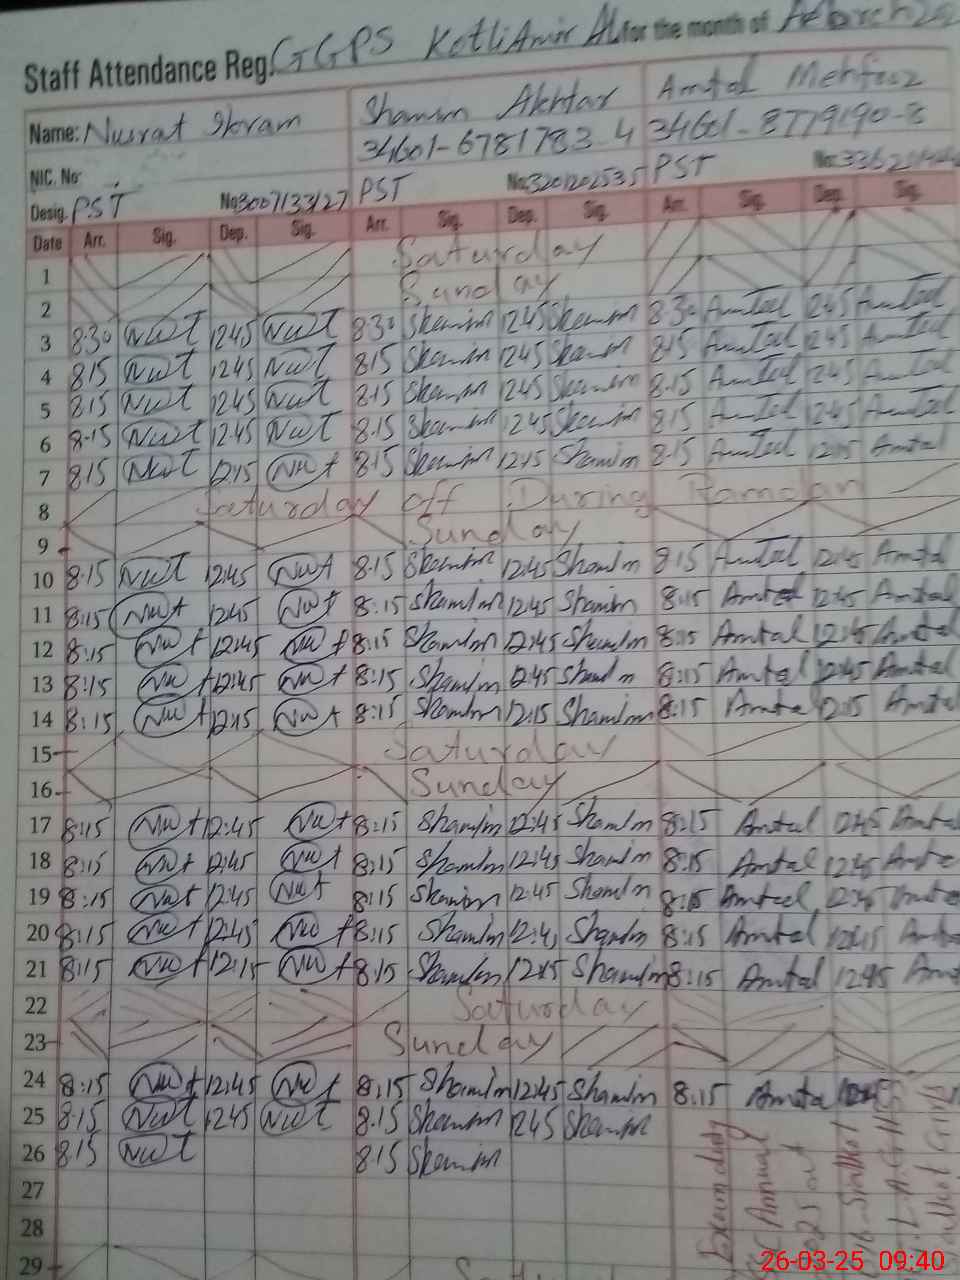 Staff Attendance Reg. GGPS Kotli Amir Ali for the month of March
Name: Nusrat Ikram Shamim Akhtar Amtal Mehfooz
34601-6781783-4 34601-8779190-8
NIC. No.
Desig. PST No. 3007133127 PST No. 3201202535 PST No.
Date Arr. Sig. Dep. Sig. Arr. Sig. Dep. Sig. Arr. Sig. Dep. Sig.
1 Saturday
2 Sunday
3 8:30 NWT 1245 NWT 8:30 Shamim 1245 Shamim 8:30 Amtal 1245 Amtal
4 815 NWT 1245 NWT 815 Shamim 1245 Shamim 815 Amtal 1245 Amtal
5 815 NWT 1245 NWT 8:15 Shamim 1245 Shamim 8:15 Amtal 1245 Amtal
6 8-15 NWT 12:45 NWT 8:15 Shamim 1245 Shamim 8:15 Amtal 1245 Amtal
7 815 NWT 12:15 NWT 8:15 Shamim 1215 Shamim 8:15 Amtal 1215 Amtal
8 Saturday off During Ramdan
9 Sunday
10 8:15 NWT 12:45 NWT 8:15 Shamim 12:45 Shamim 8:15 Amtal 12:45 Amtal
11 8:15 NWT 1245 NWT 8:15 Shamim 12:45 Shamim 8:15 Amtal 12:45 Amtal
12 8:15 NWT 12:45 NWT 8:15 Shamim 12:45 Shamim 8:15 Amtal 12:45 Amtal
13 8:15 NWT 12:45 NWT 8:15 Shamim 12:45 Shamim 8:15 Amtal 12:45 Amtal
14 8:15 NWT 12:15 NWT 8:15 Shamim 12:15 Shamim 8:15 Amtal 12:15 Amtal
15 Saturday
16 Sunday
17 8:15 NWT 12:45 NWT 8:15 Shamim 12:45 Shamim 8:15 Amtal 12:45 Amtal
18 8:15 NWT 12:45 NWT 8:15 Shamim 12:45 Shamim 8:15 Amtal 12:45 Amta
19 8:15 NWT 12:45 NWT 8:15 Shamim 12:45 Shamim 8:15 Amtal 12:45 Amta
20 8:15 NWT 12:45 NWT 8:15 Shamim 12:4 Shamim 8:15 Amtal 12:45 Amta
21 8:15 NWT 12:15 NWT 8:15 Shamim 12:15 Shamim 8:15 Amtal 12:45 Am
22 Saturday
23 Sunday
24 8:15 NWT 12:45 NWT 8:15 Shamim 12:45 Shamim 8:15 Amtal
25 8:15 NWT 1245 NWT 8:15 Shamim 1245 Shamim
26 815 NWT 815 Shamim
27
28
29
Exam duty
Annual
2025 at
26-03-25 09:40